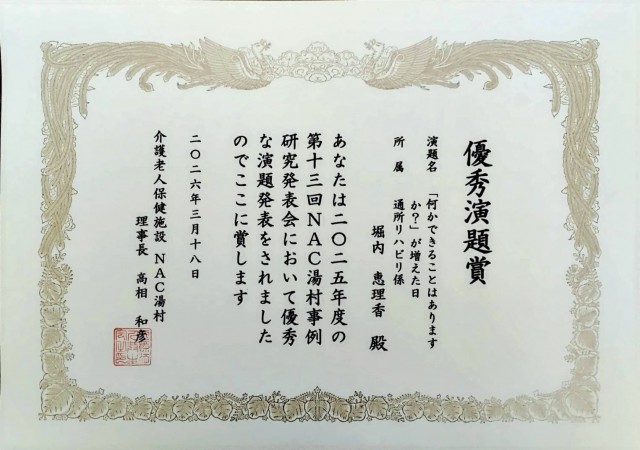 優秀演題賞
演題名 「何かできることはあります
か?」が増えた日
所属 通所リハビリ係
堀内 恵理香 殿
あなたは二〇二五年度の
第十三回NAC湯村事例
研究発表会において優秀
な演題発表をされました
のでここに賞します
二〇二六年三月十八日
介護老人保健施設 NAC湯村
理事長 高相 和彦